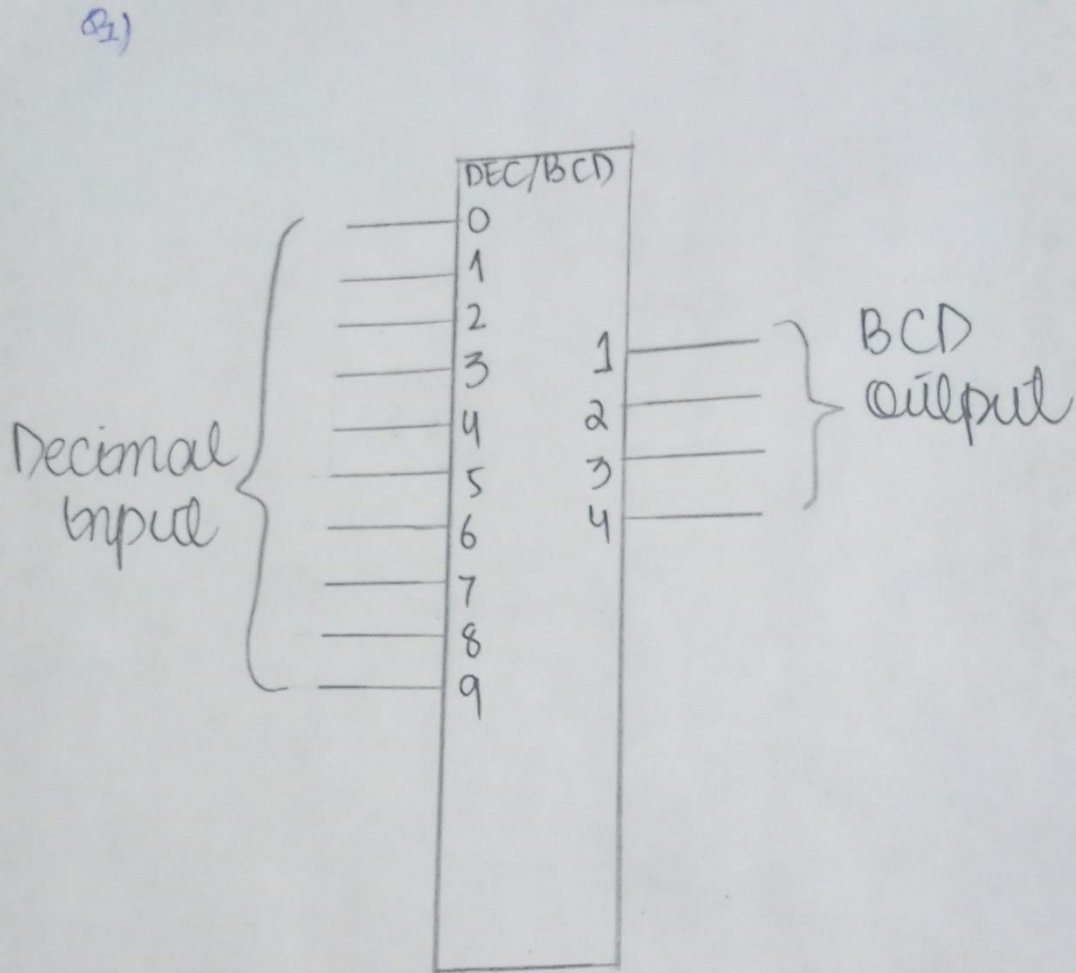 Q1)
DEC/BCD
0
1
2
3
4
5
6
7
8
9
1
2
3
4
Decimal
Input
BCD
Output